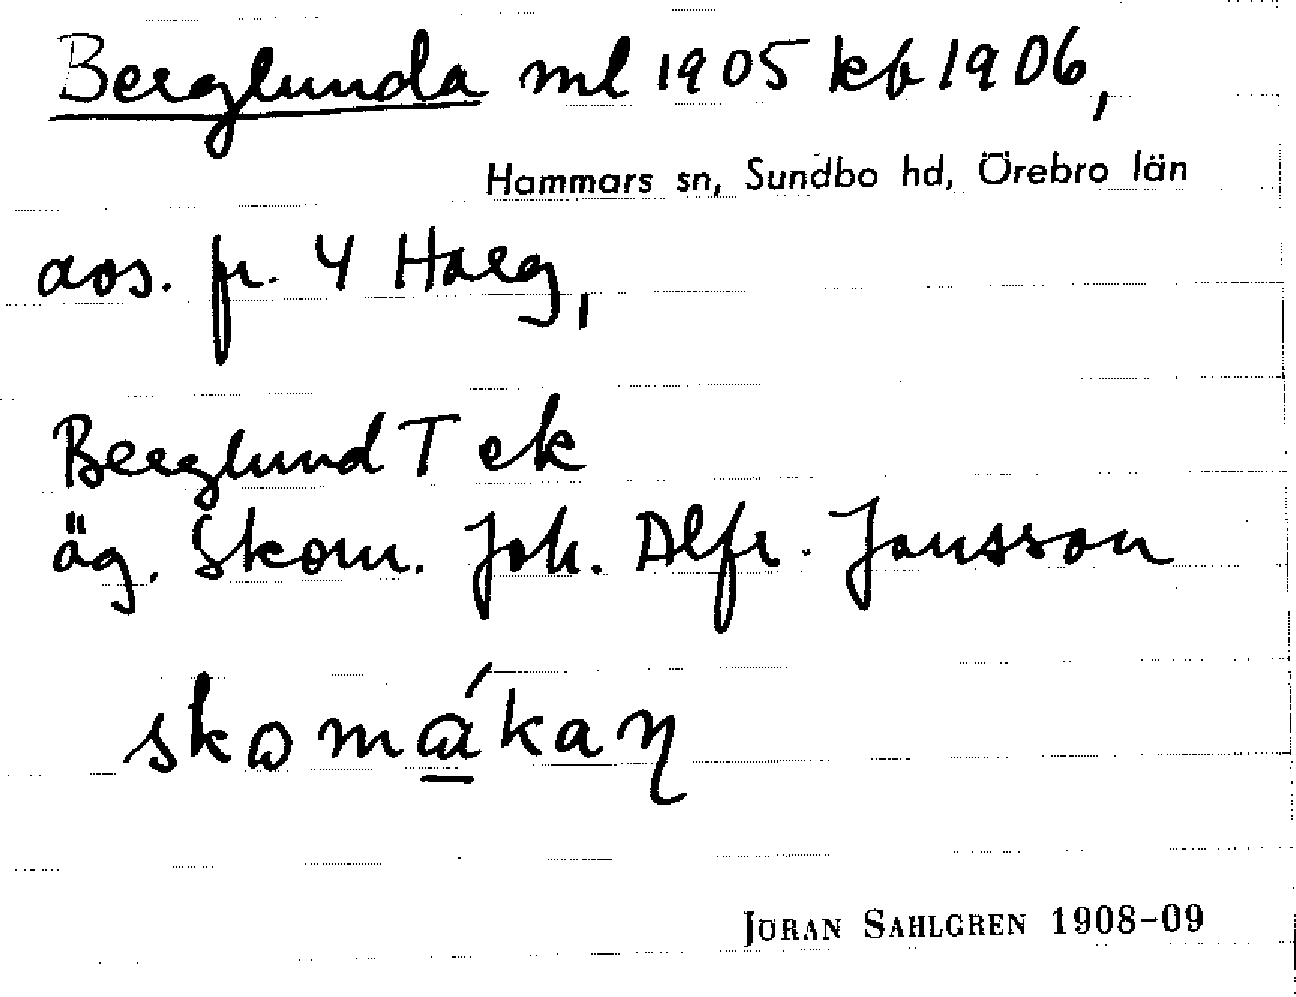 Berglunda ml 1905 kb 1906,
Hammars sn, Sundbo hd, Örebro län
avs. fr. 4 Harg,
Berglund T ek
äg. Skom. Joh. Alfr. Jansson
JÖRAN SAHLGREN 1908-09